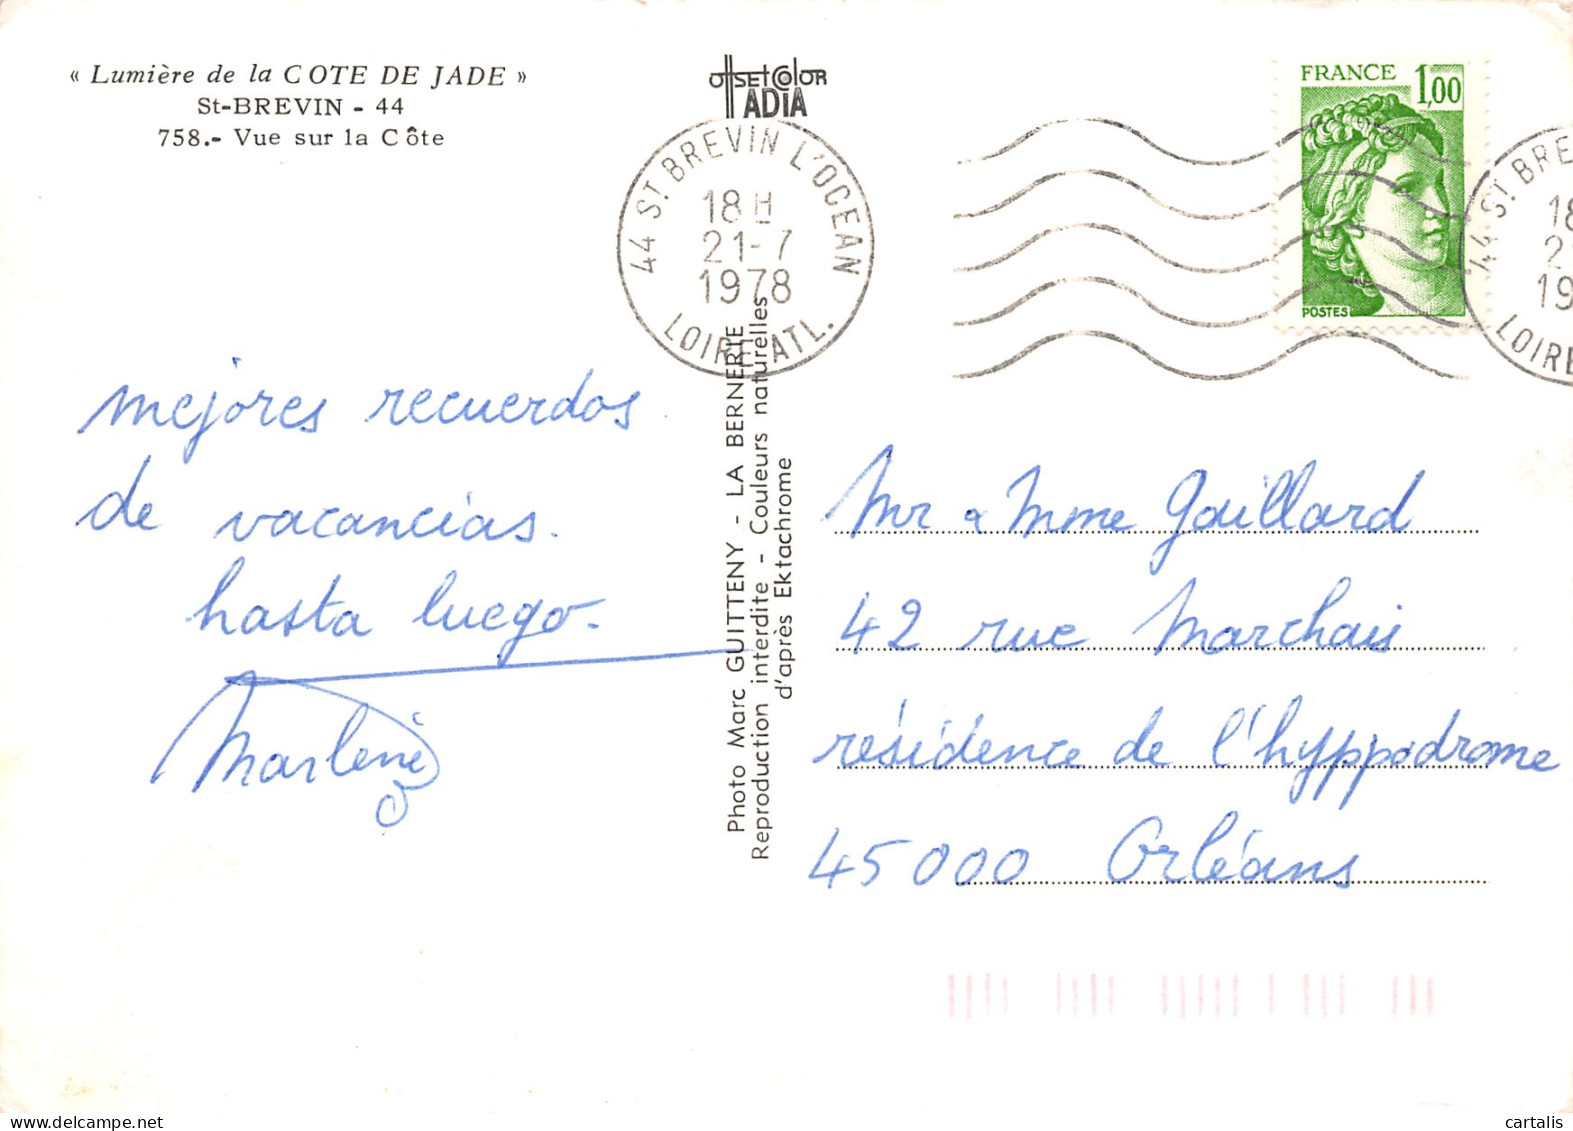 « Lumière de la COTE DE JADE »
St-BREVIN - 44
758.- Vue sur la Côte
offsetcolor
ADIA
44 ST BREVIN L'OCEAN
18 H
21-7
1978
LOIRE ATL.
FRANCE 1,00
POSTES
44 ST BRE
18
2
19
LOIRE
mejores recuerdos
de vacancias.
hasta luego.
Marlène
Photo Marc GUITTENY - LA BERNERIE
Reproduction interdite - Couleurs naturelles
d'après Ektachrome
Mr & Mme Gaillard
42 rue Marchais
résidence de l'hyppodrome
45000 Orléans
cartalis